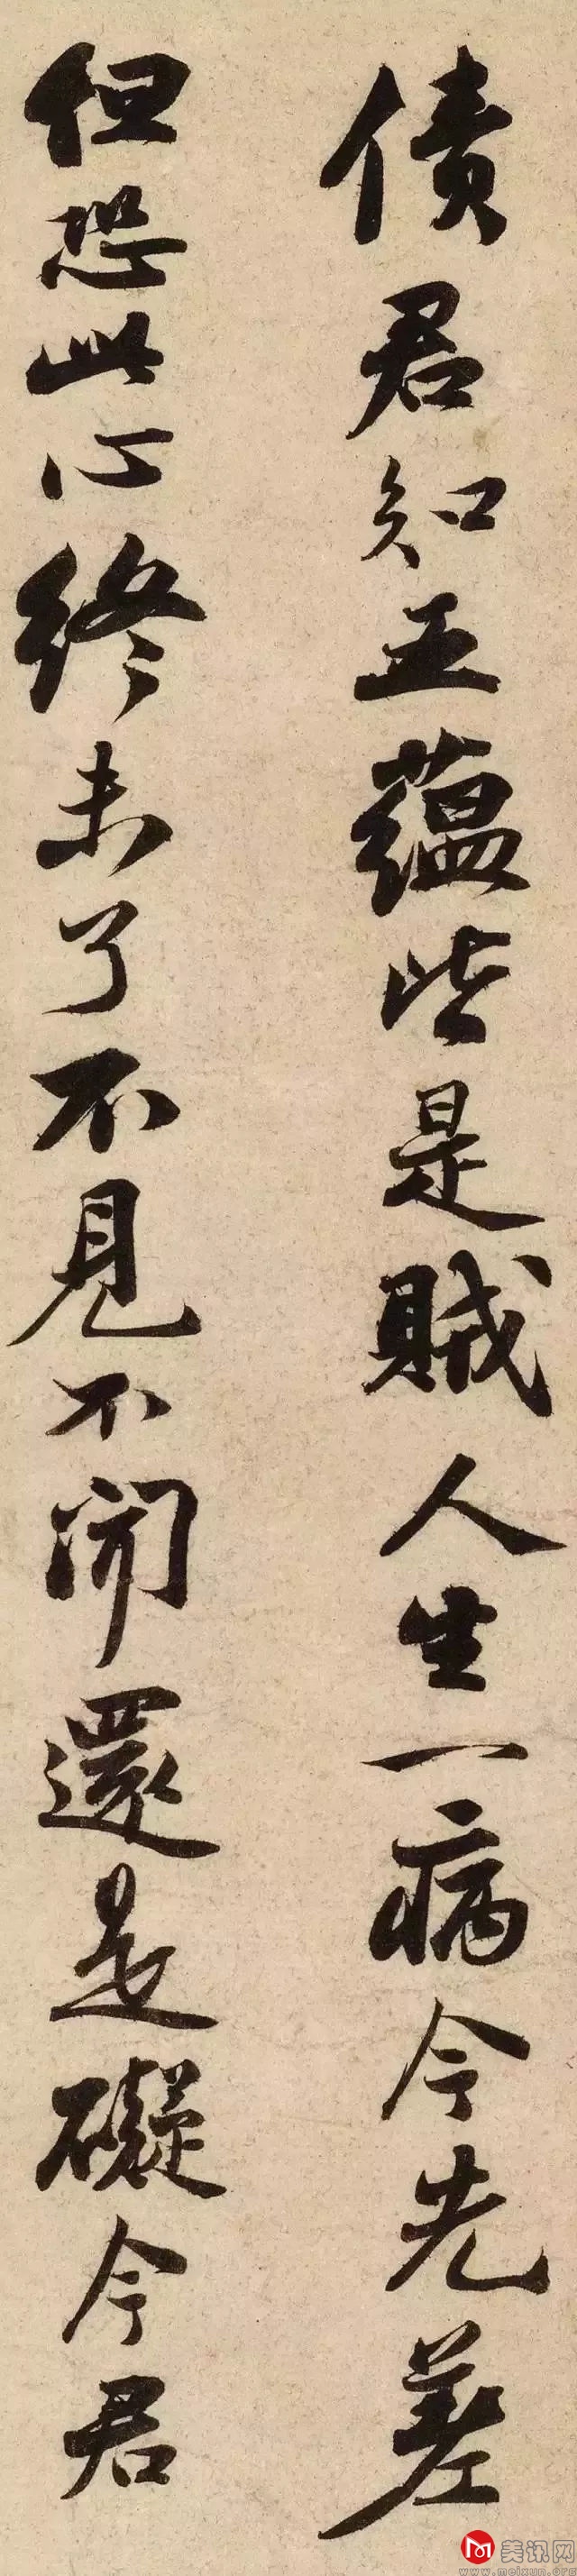 債君知五蘊皆是賊人生一病今先差
但恐此心終未了不見不聞還是礙今君
美讯网
www.meixun.org